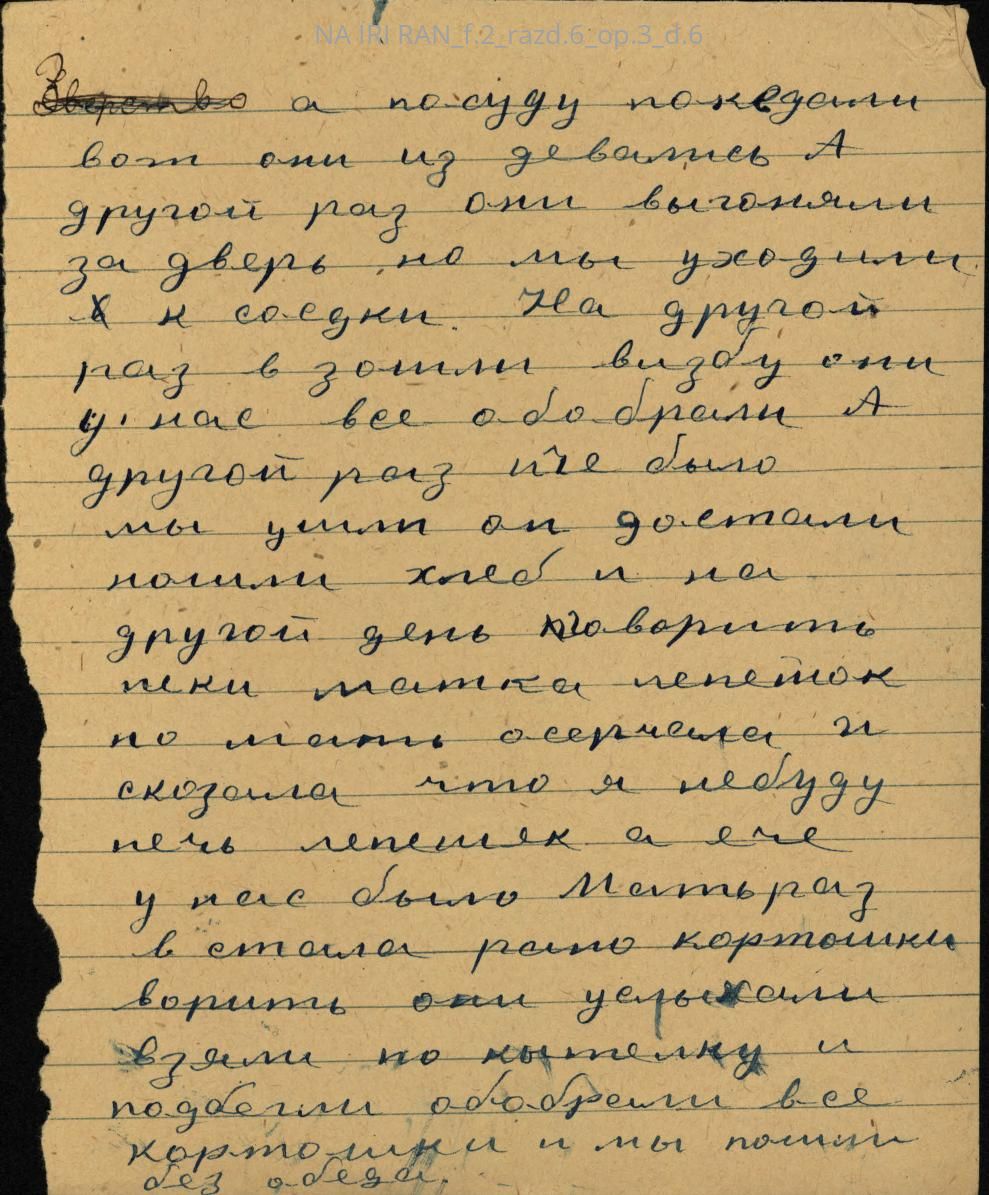 NA IRI RAN_f.2_razd.6_op.3_d.6
Зверство а посуду покедали
вот они из девались А
другой раз они выгоняли
за дверь, но мы уходили
к соедки. На другой
раз в зошли визбу они
у нас все обобрали А
другой раз иче было
мы ушли он достали
ношли хлеб и на
другой день говорить
пеки матка лепеток
но мать осерчала и
скозала что я небуду
печь лепешек а ече
у нас было Матьраз
в стала рано кортошки
ворить они услыхали
взяли по кытелку и
подбегли обобрали все
кортошки и мы пошли
без обеда.